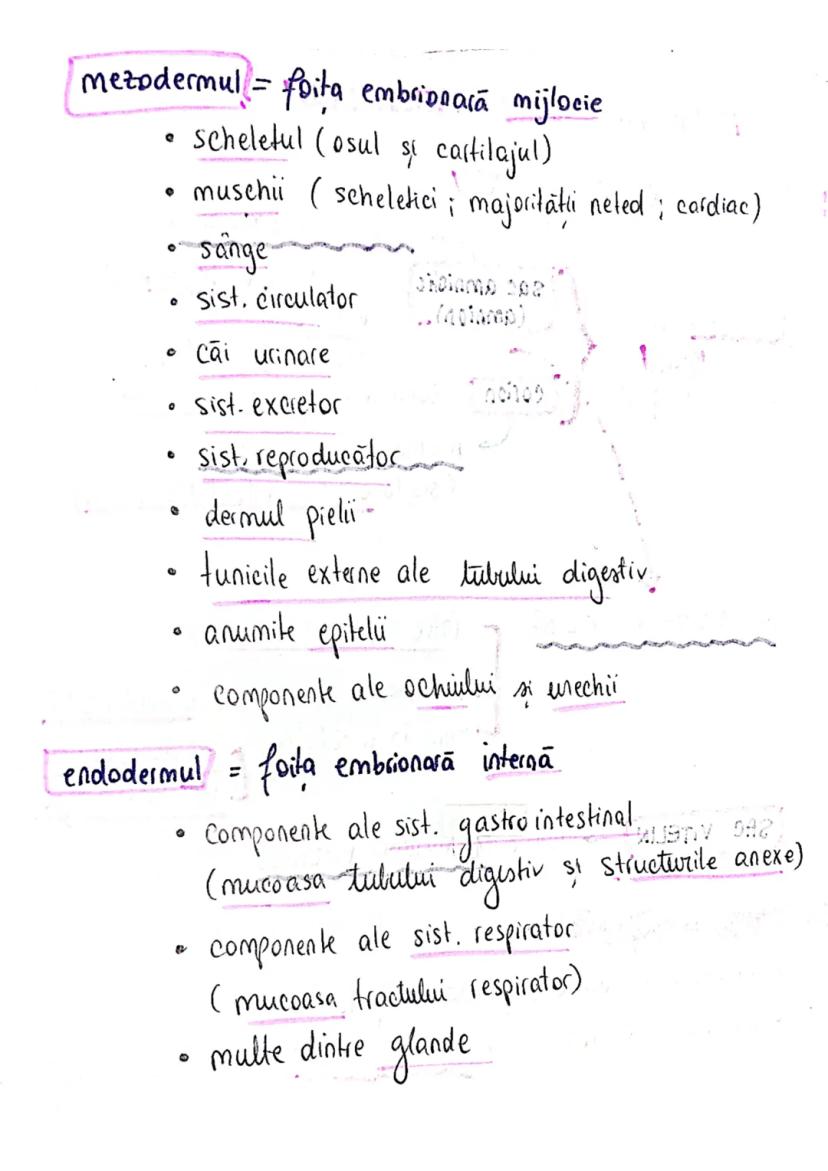 mezodermul = foița embrionară mijlocie
• scheletul (osul și cartilajul)
• mușchii ( scheletici ; majorității neted ; cardiac)
• sânge
• sist. circulator
• căi urinare
• sist. excretor
• sist. reproducător
• dermul pielii
• tunicile externe ale tubului digestiv
• anumite epitelii
• componente ale ochiului și urechii
endodermul = foița embrionară internă
• componente ale sist. gastro intestinal
(mucoasa tubului digestiv și structurile anexe)
• componente ale sist. respirator
( mucoasa tractului respirator)
• multe dintre glande